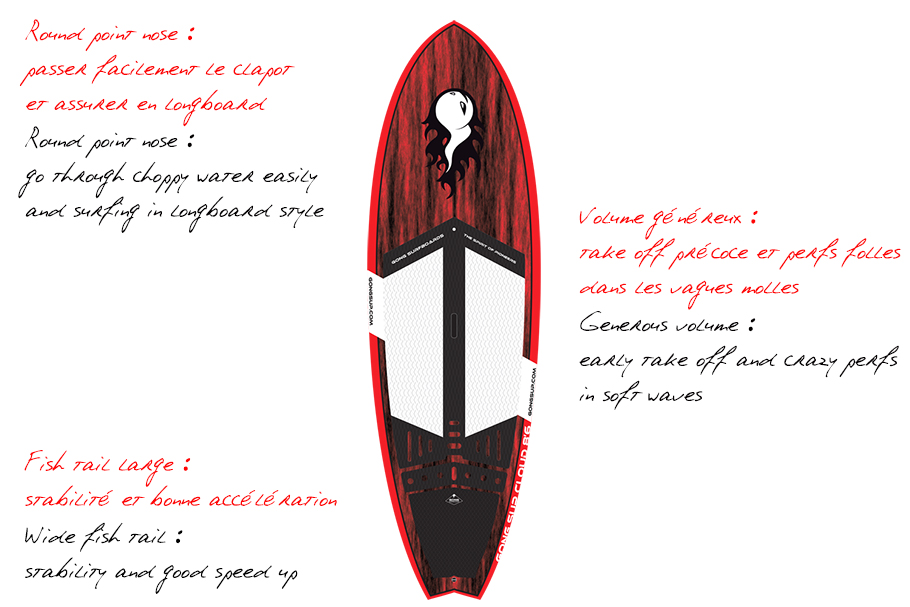 Round point nose :
passer facilement le clapot
et assurer en longboard
Round point nose :
go through choppy water easily
and surfing in longboard style
GONG SURFBOARDS
THE SPIRIT OF PIONEERS
GONGSUP.COM
Volume généreux :
take off précoce et perfs folles
dans les vagues molles
Generous volume :
early take off and crazy perfs
in soft waves
GONGSUP.COM
GONG SUP CLOUD 8'6
Fish tail large :
stabilité et bonne accélération
Wide fish tail :
stability and good speed up